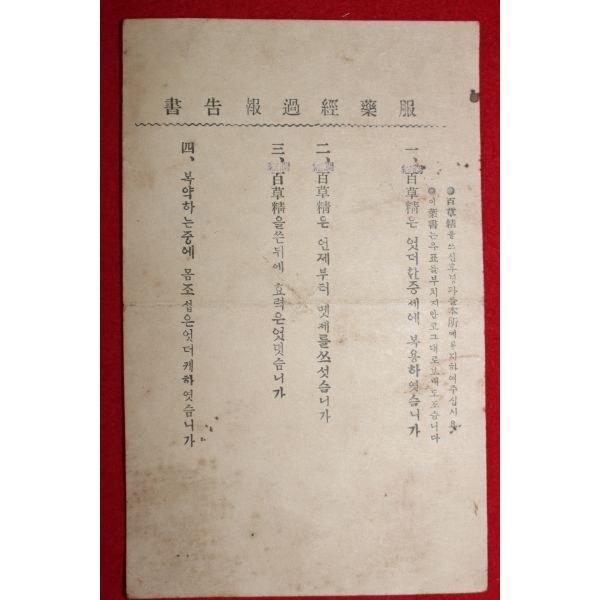 服藥經過報告書
◉百草精을쓰신후경과를本所에通지하여주십시요
◉이葉書는우표를부치지안코그대로보내도조습니다
一、百草精은 엇더한증세에 복용하엿슴니가
二、百草精은 언제부터 몃제를쓰섯슴니가
三、百草精을쓴뒤에 효력은엇덧슴니가
四、복약하는중에 몸조섭은엇더케하엿슴니가